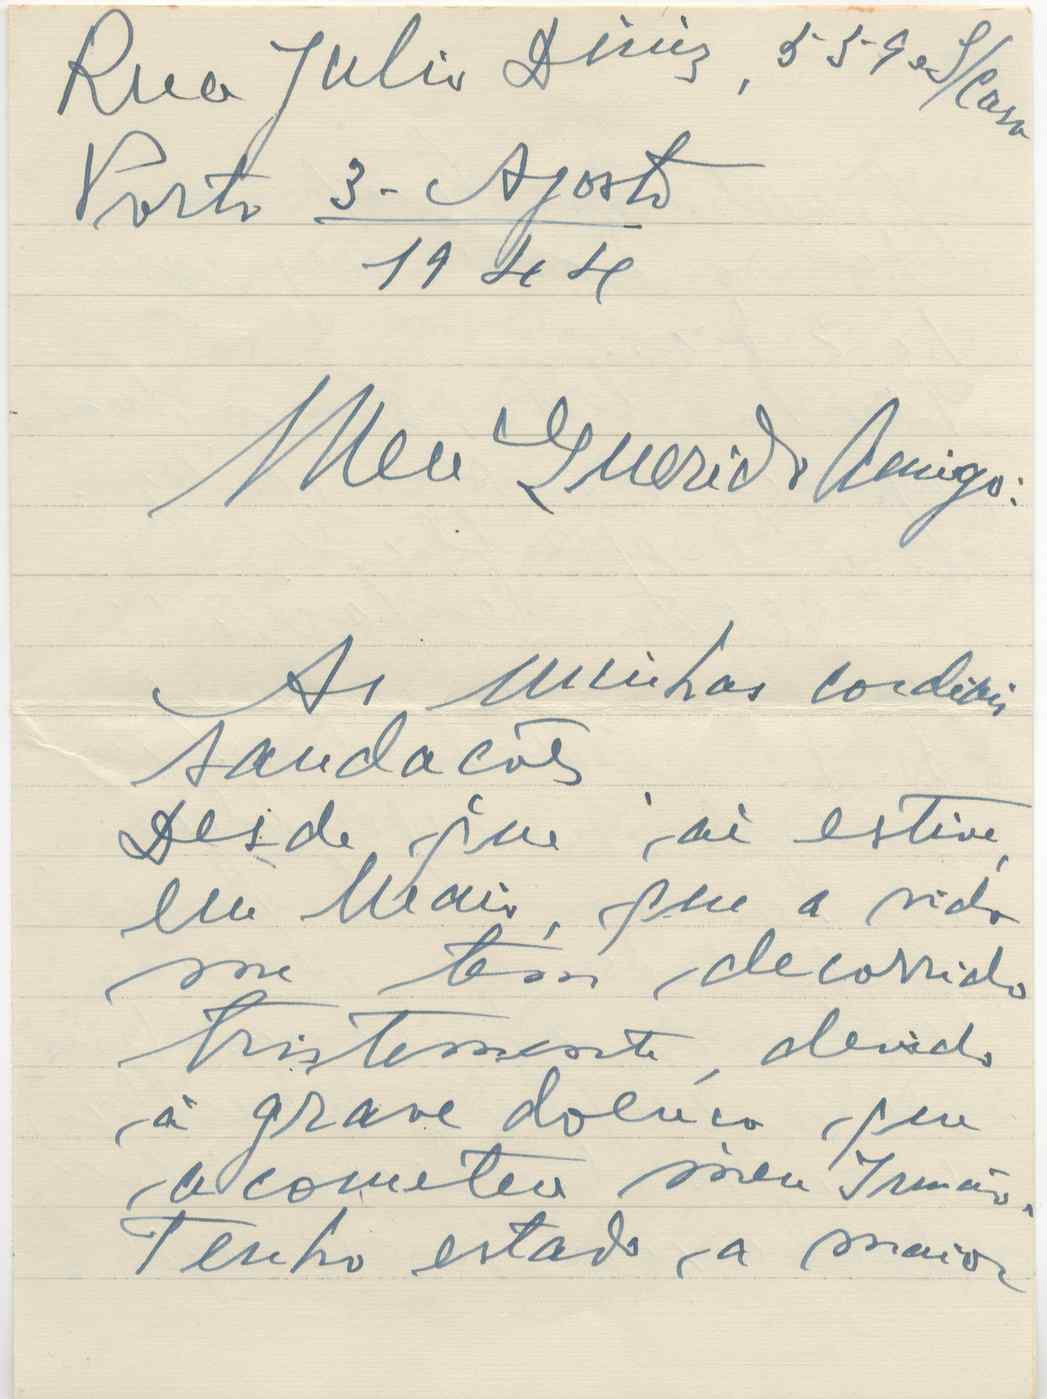 Rua Julio Diniz, 559 S/Casa
Porto 3 - Agosto
1944
Meu Querido Amigo:
As minhas cordiais
saudacões
Desde que aí estive,
em Maio, que a vida
me tem decorrido
tristemente, devido
à grave doença que
acometeu meu Irmão.
Tenho estado a maior